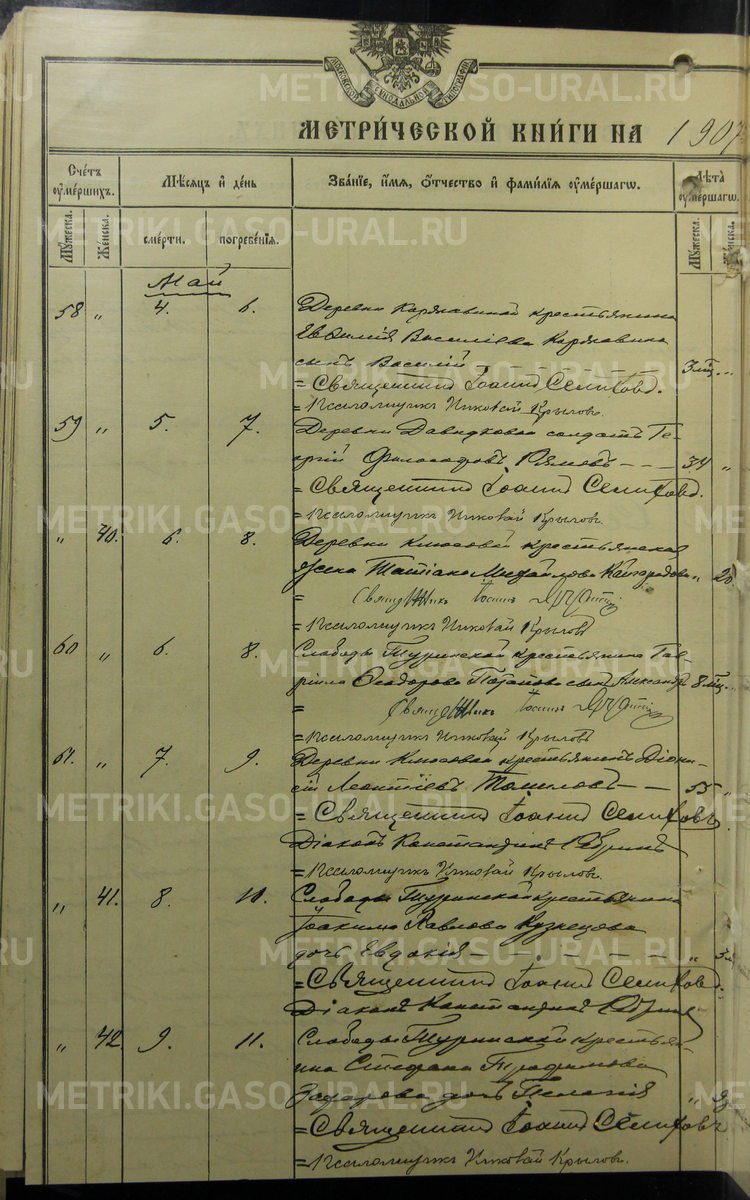 МОСКОВСКОЙ СѴНОДАЛЬНОЙ ТИПОГРАФІИ
МЕТРИ́ЧЕСКОЙ КНИ́ГИ НА 1907
Сче́тъ ᲂу҆ме́ршихъ.
Мѣ́сяцъ и҆ де́нь
Зва́нїе, и҆́мя, ѻ҆́тчество и҆ фами́лїя ᲂу҆ме́ршагѡ.
Лѣта̀ ᲂу҆ме́ршагѡ.
Мꙋ́жеска.
Же́нска.
сме́рти.
погребе́нїя.
Мꙋ́жеска.
Же́нска.
Май
58 " 4. 6. Деревни Корявиной крестьянина
Евѳимія Василіева Корявина
сынъ Василій 3 "
= Священникъ Іоаннъ Селивовъ.
= Псаломщикъ Николай Крыловъ.
59 " 5. 7. Деревни Давыдковой солдатъ Ге-
Философовъ 34 "
= Священникъ Іоаннъ Селивовъ.
= Псаломщикъ Николай Крыловъ.
" 40. 6. 8. Деревни крестьянская
Татіана Михайлова " 20
= Священникъ Іоаннъ
= Псаломщикъ Николай Крыловъ
60 " 6. 8. Слободы Туринской крестьянина Гав-
ріила Ѳеодорова сынъ Александръ 8
= Священникъ Іоаннъ
= Псаломщикъ Николай Крыловъ
61. " 7. 9. Деревни крестьянинъ Діони-
сій Леонтіевъ Томиловъ 55 "
= Священникъ Іоаннъ Селивовъ
Діаконъ Константинъ
= Псаломщикъ Николай Крыловъ.
" 41. 8. 10. Слободы Туринской крестьянина
Іоакима Павлова Кузнецова
дочь Евдокія "
= Священникъ Іоаннъ Селивовъ.
Діаконъ Константинъ
" 42. 9. 11. Слободы Туринской крестья-
нина Стефана Трофимова
Захарова дочь Пелагія "
= Священникъ Іоаннъ Селивовъ
= Псаломщикъ Николай Крыловъ.
METRIKI.GASO-URAL.RU